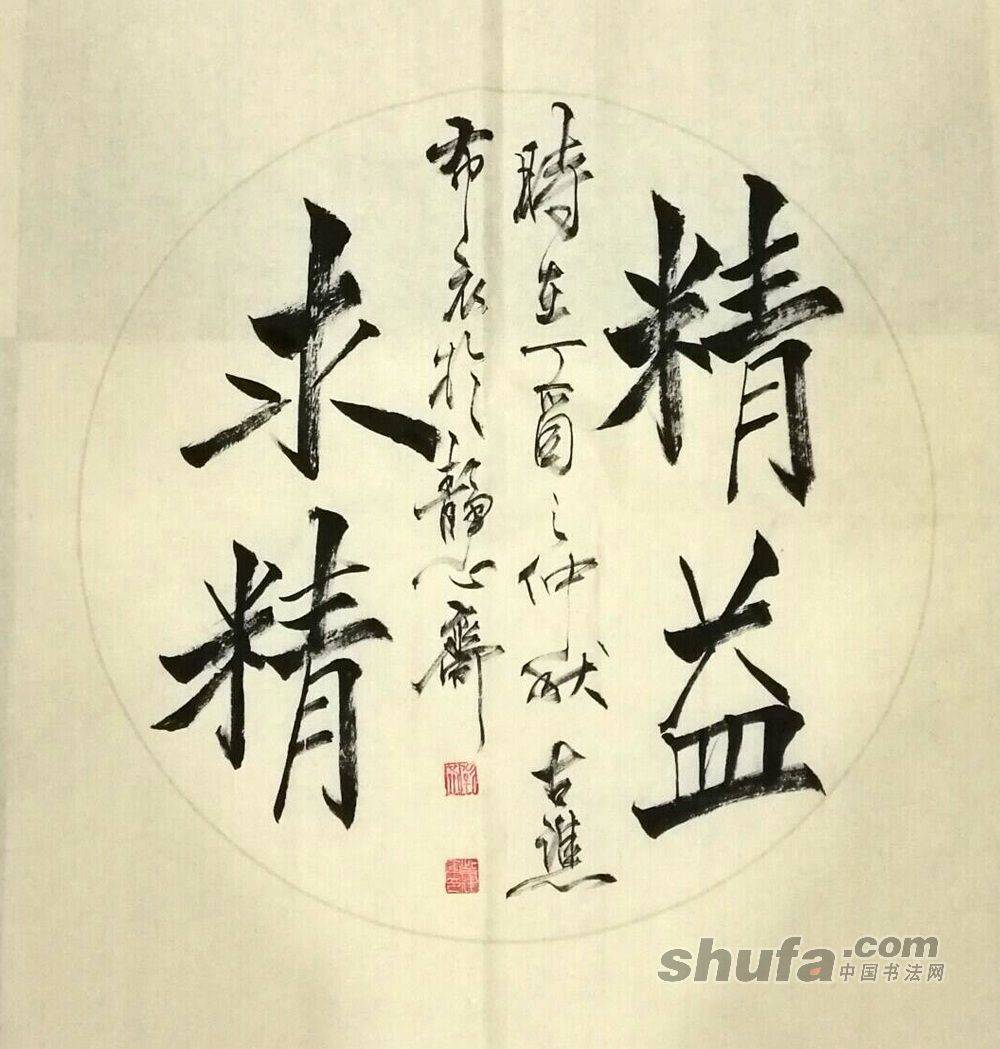 精益
求精
時在丁酉之仲秋 古譙
布衣於靜心齋
shufa.com
中国书法网